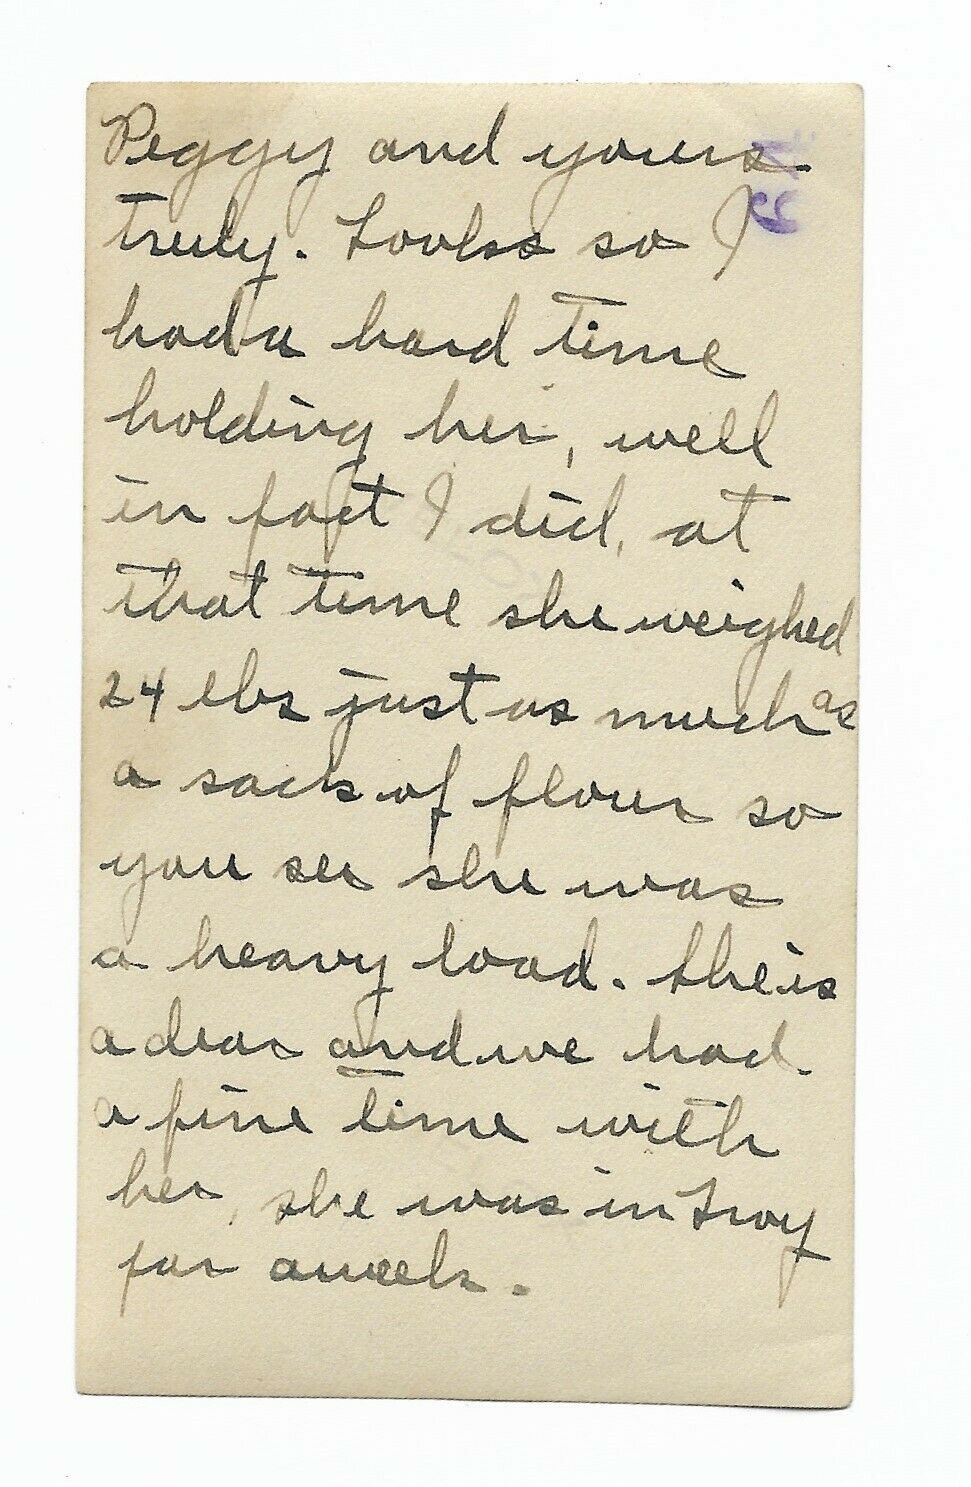 Peggy and yours
truly. Looks so I
had a hard time
holding her, well
in fact I did, at
that time she weighed
24 lbs just as much as
a sack of flour so
you see she was
a heavy load. She is
a dear and we had
a fine time with
her, she was in Troy
for a week.